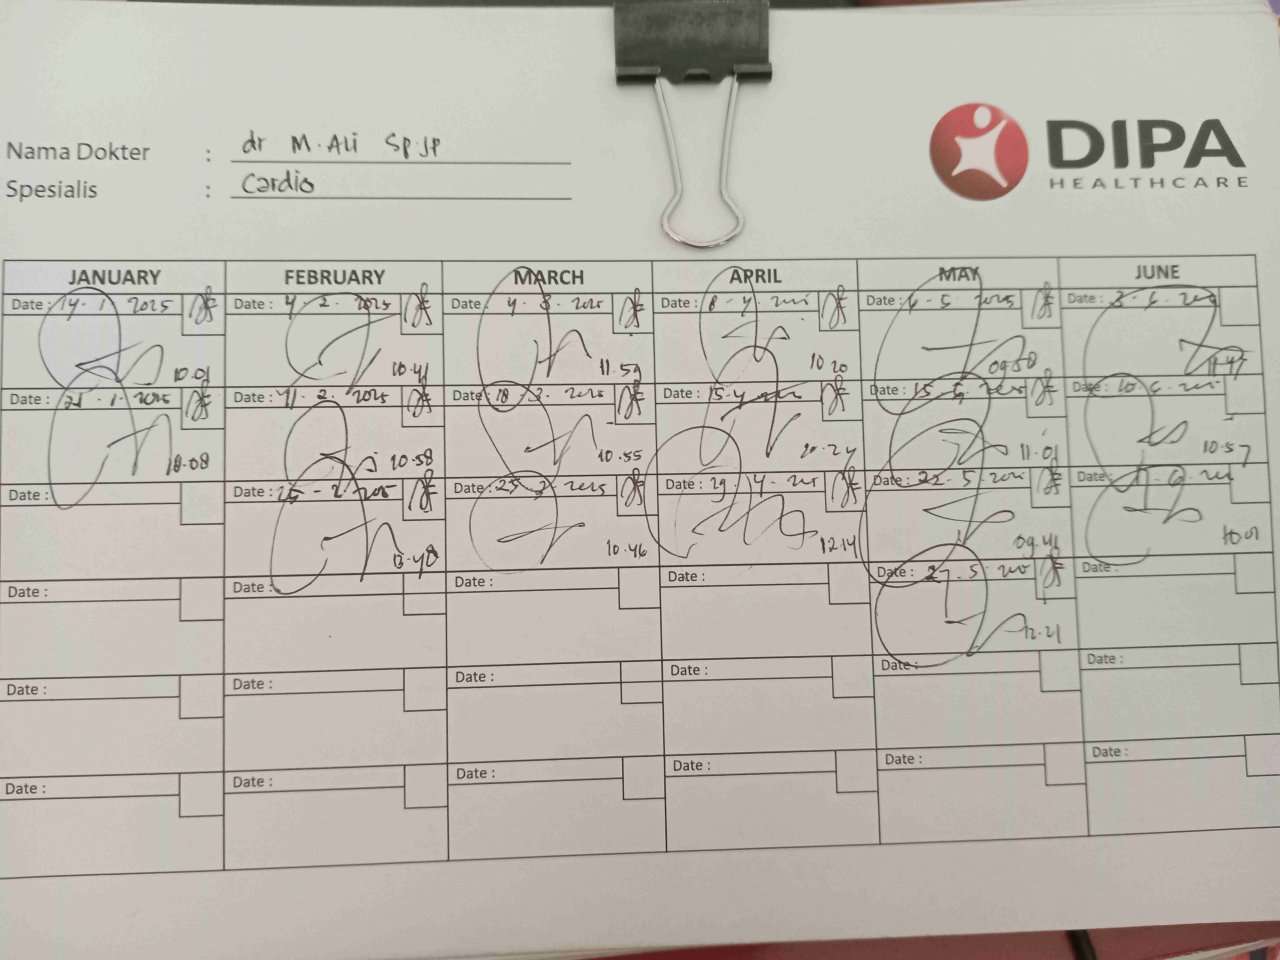 Nama Dokter : dr M. Ali Sp.JP
Spesialis : Cardio
DIPA
HEALTHCARE
JANUARY FEBRUARY MARCH APRIL MAY JUNE
Date : 14 . 1 2025 Date : 4 . 2 . 2025 Date : 4 . 3 . 2025 Date : 8 - 4 . Date : 6 - 5 . 2025 Date : 3 - 6 .
10.01 10.41 11.59 10 20 09.58 11.47
Date : 21 . 1 . 2025 Date : 11 . 2 . 2025 Date : 18 . 3 . 2025 Date : 15 - 4 Date : 15 . 5 . Date : 10 . 6 .
10.08 10.58 10.55 10.24 11.01 10.57
Date : Date : 25 - 2 . 2025 Date : 25 . 3 . 2025 Date : 29 . 4 . Date : 22 . 5 Date :
13.48 10.46 12.14 09.41 10.01
Date : Date : Date : Date : Date : 27 . 5 . Date :
12.21
Date : Date : Date : Date : Date : Date :
Date : Date : Date : Date : Date : Date :